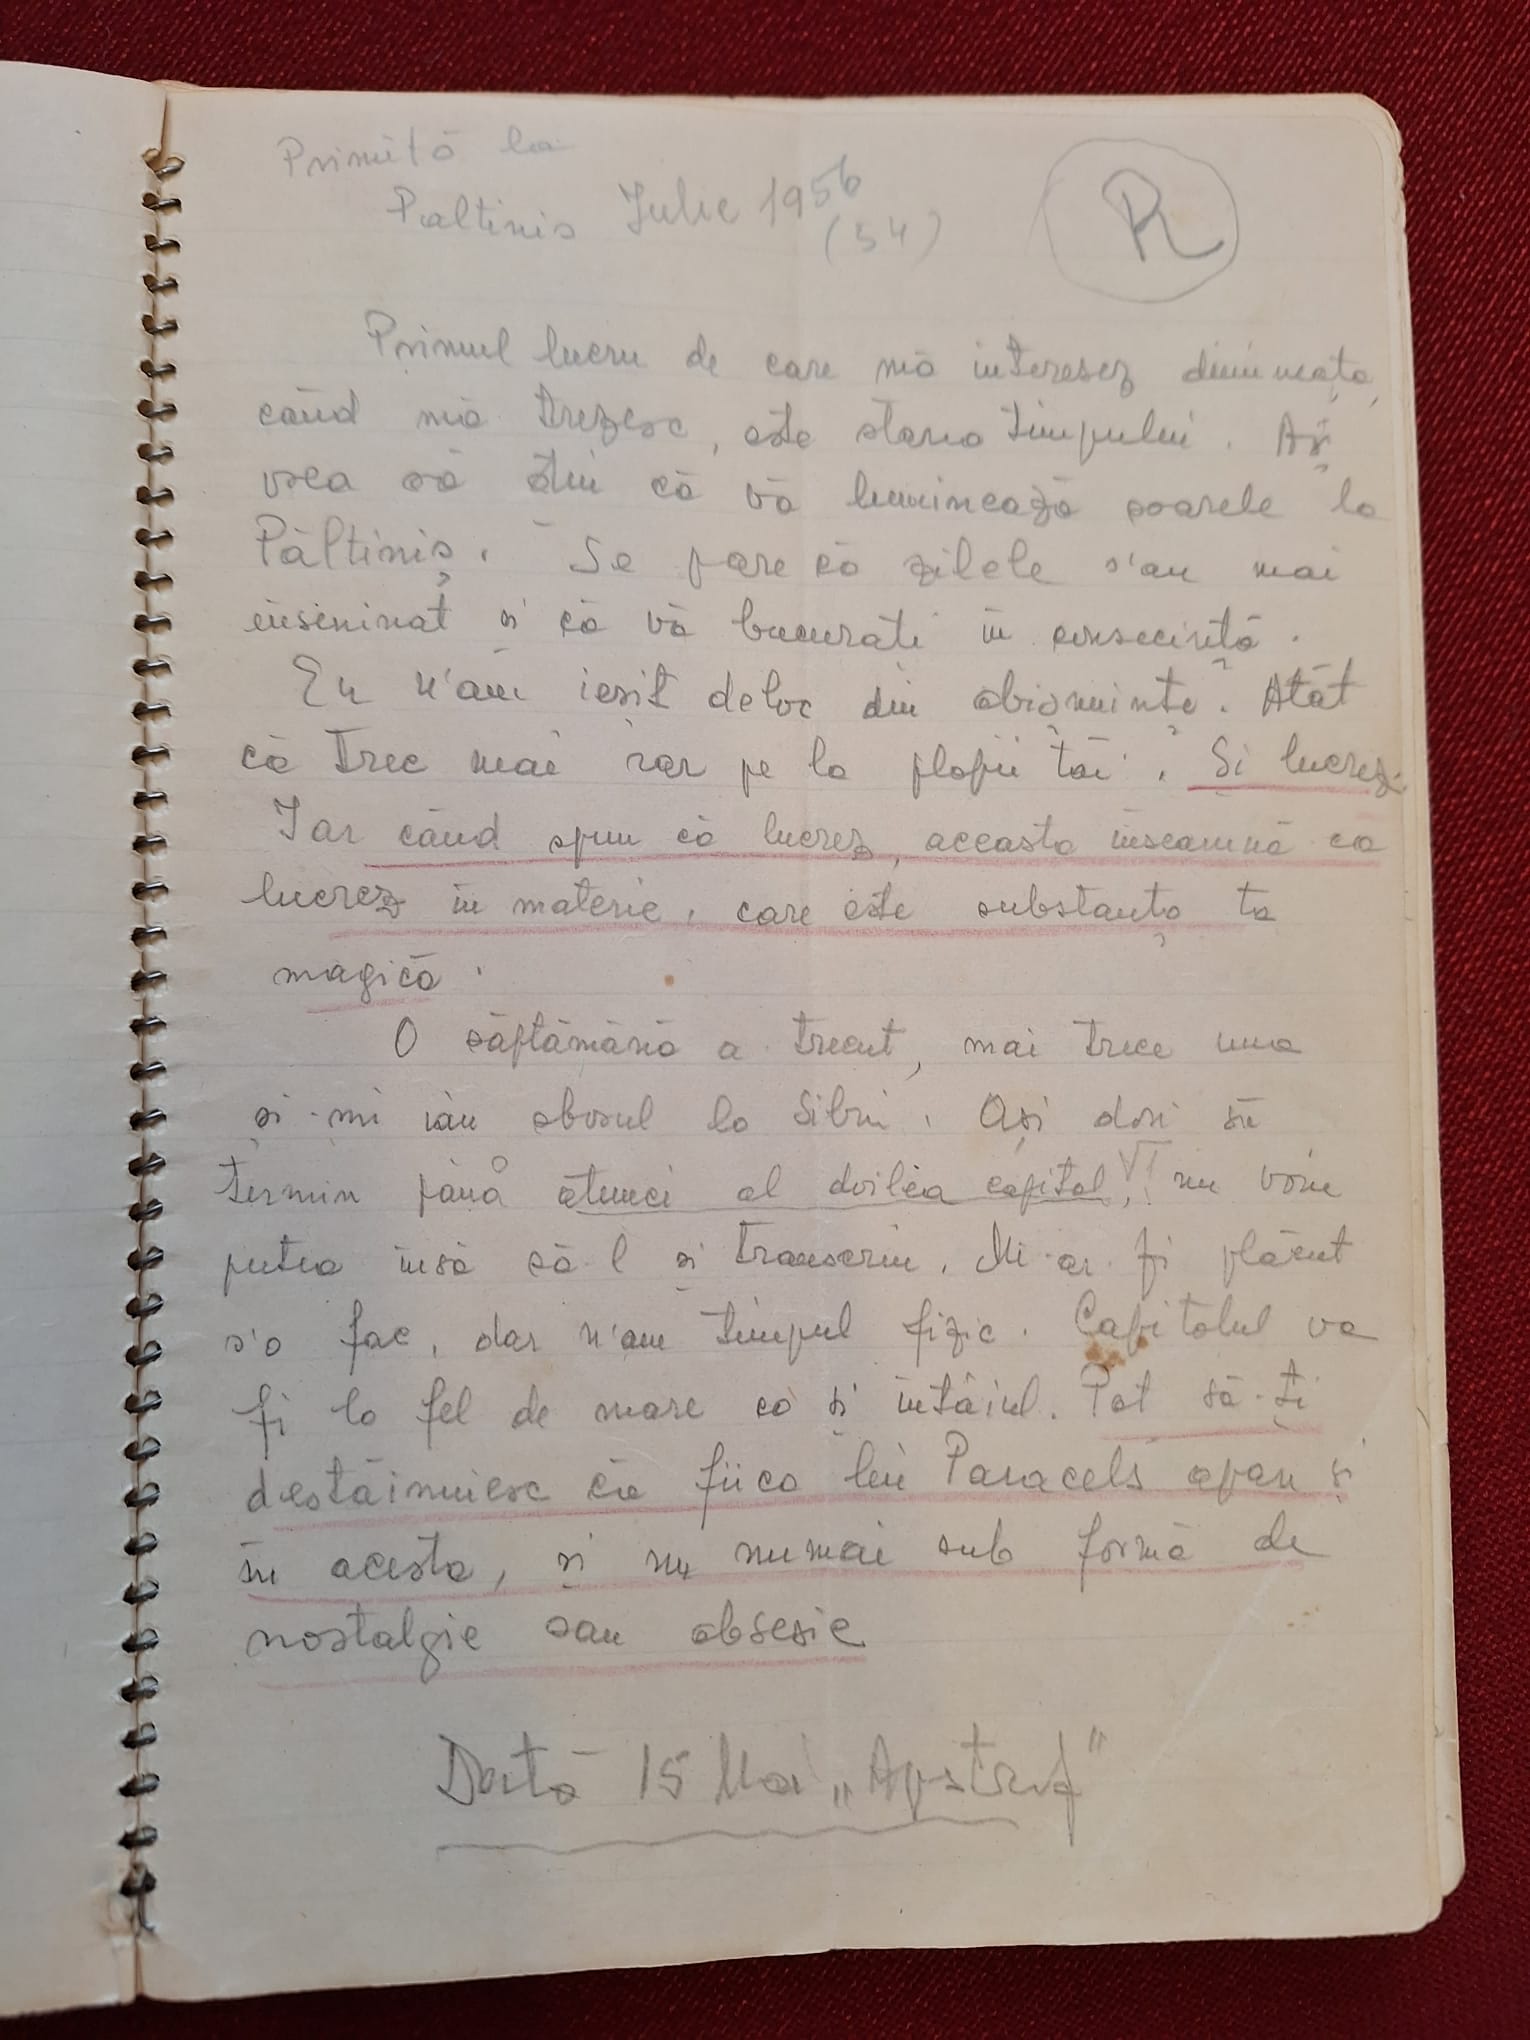 Primită la
Paltinis Iulie 1956
(54)
R
Primul lucru de care mă interesez dimineața,
când mă trezesc, este starea timpului. Aș
vrea să știu că vă luminează soarele la
Păltiniș. Se pare că zilele s'au mai
înseninat și că vă bucurați în consecință.
Eu n'am ieșit deloc din obișnuințe. Atât
că trec mai rar pe la plopii tăi. Și lucrez.
Iar când spun că lucrez, aceasta înseamnă că
lucrez în materie, care este substanța ta
magică.
O săptămână a trecut, mai trece una
și-mi iau abosul la Sibiu. Ași dori să
termin până atunci al doilea capitol, VI nu voiu
putea însă să-l și transcriu. Mi-ar fi plăcut
s'o fac, dar n'am timpul fizic. Capitolul va
fi la fel de mare ca și întâiul. Pot să-ți
destăinuiesc că fiica lui Paracels apare și
în acesta, și nu numai sub formă de
nostalgie sau obsesie
Dată 15 Mai „Apstrof"